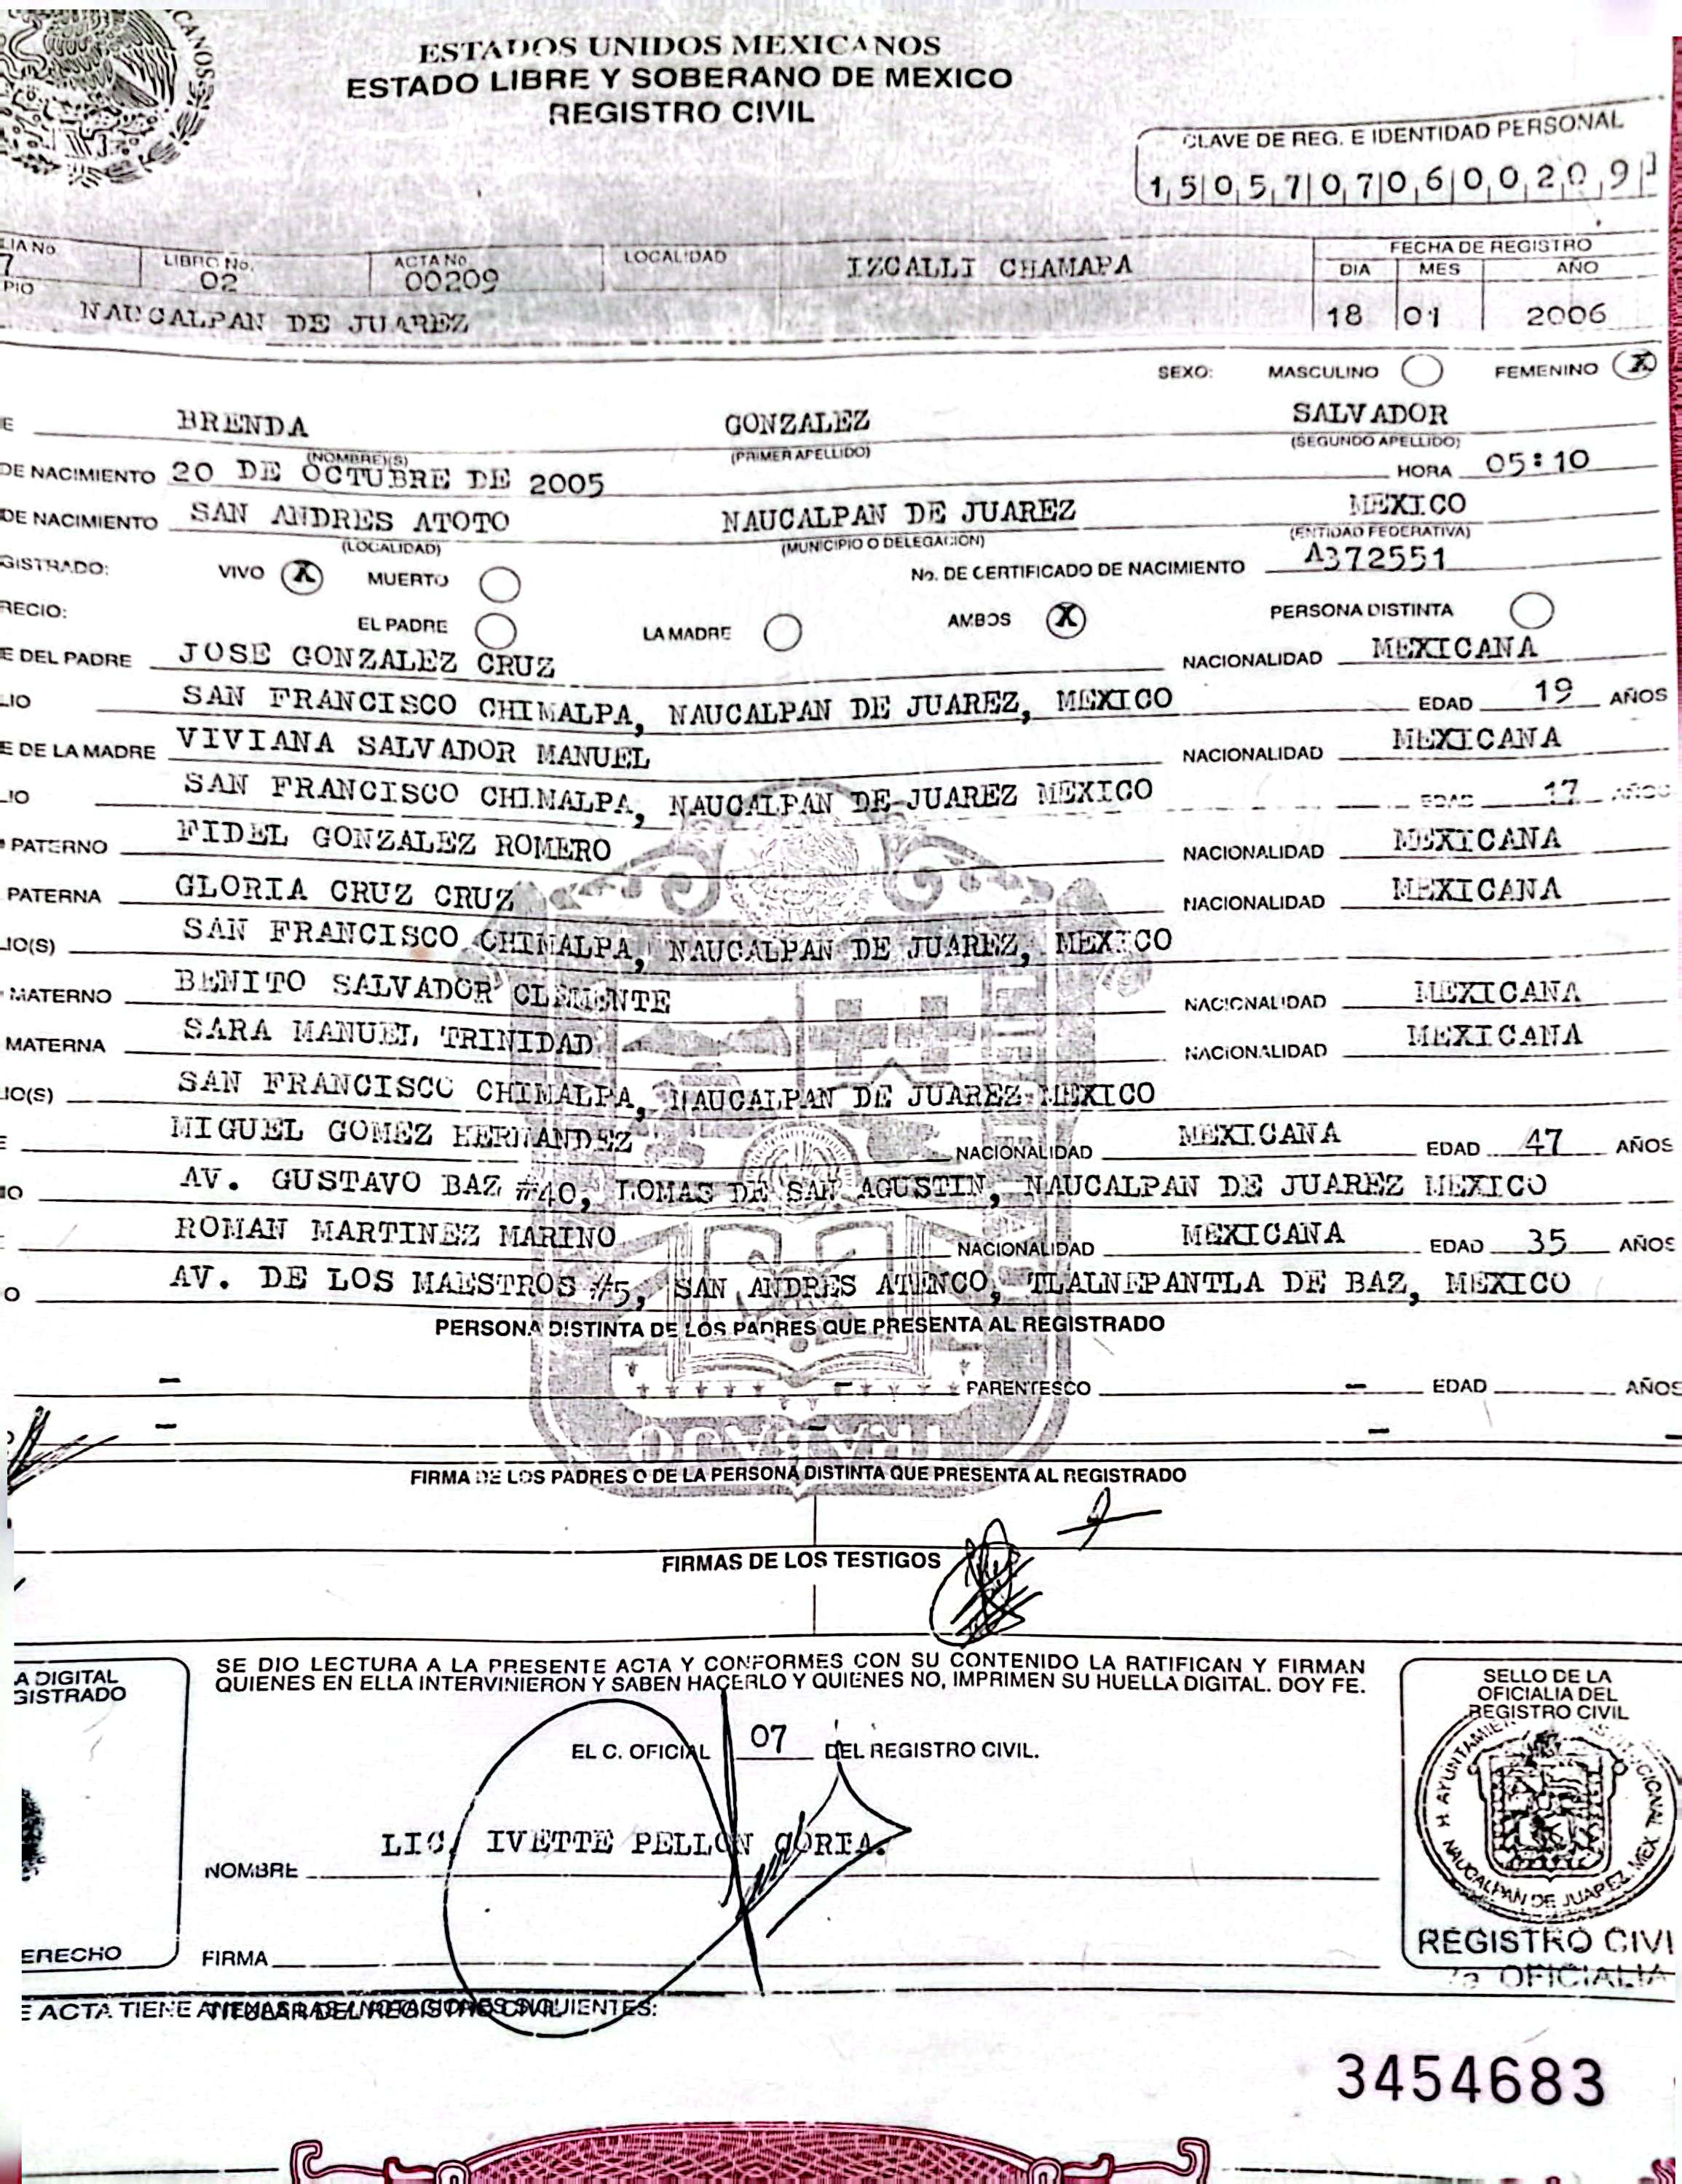 CANOS
ESTADOS UNIDOS MEXICANOS
ESTADO LIBRE Y SOBERANO DE MEXICO
REGISTRO CIVIL
CLAVE DE REG. E IDENTIDAD PERSONAL
15057070600209
LIA No. 7 LIBRO No. 02 ACTA No. 00209 LOCALIDAD IZCALLI CHAMAPA FECHA DE REGISTRO
DIA MES AÑO
PIO NAUCALPAN DE JUAREZ 18 01 2006
SEXO: MASCULINO FEMENINO X
E BRENDA GONZALEZ SALVADOR
(NOMBRE(S) (PRIMER APELLIDO) (SEGUNDO APELLIDO)
DE NACIMIENTO 20 DE OCTUBRE DE 2005 HORA 05:10
DE NACIMIENTO SAN ANDRES ATOTO NAUCALPAN DE JUAREZ MEXICO
(LOCALIDAD) (MUNICIPIO O DELEGACION) (ENTIDAD FEDERATIVA)
GISTRADO: VIVO X MUERTO No. DE CERTIFICADO DE NACIMIENTO A372551
RECIO: EL PADRE LA MADRE AMBOS X PERSONA DISTINTA
E DEL PADRE JOSE GONZALEZ CRUZ NACIONALIDAD MEXICANA
LIO SAN FRANCISCO CHIMALPA, NAUCALPAN DE JUAREZ, MEXICO EDAD 19 AÑOS
E DE LA MADRE VIVIANA SALVADOR MANUEL NACIONALIDAD MEXICANA
LIO SAN FRANCISCO CHIMALPA, NAUCALPAN DE JUAREZ MEXICO EDAD 17 AÑOS
PATERNO FIDEL GONZALEZ ROMERO NACIONALIDAD MEXICANA
PATERNA GLORIA CRUZ CRUZ NACIONALIDAD MEXICANA
LIO(S) SAN FRANCISCO CHIMALPA, NAUCALPAN DE JUAREZ, MEXICO
MATERNO BENITO SALVADOR CLEMENTE NACIONALIDAD MEXICANA
MATERNA SARA MANUEL TRINIDAD NACIONALIDAD MEXICANA
LIO(S) SAN FRANCISCO CHIMALPA, NAUCALPAN DE JUAREZ MEXICO
E MIGUEL GOMEZ HERNANDEZ NACIONALIDAD MEXICANA EDAD 47 AÑOS
IO AV. GUSTAVO BAZ #40, LOMAS DE SAN AGUSTIN, NAUCALPAN DE JUAREZ MEXICO
E ROMAN MARTINEZ MARINO NACIONALIDAD MEXICANA EDAD 35 AÑOS
O AV. DE LOS MAESTROS #5, SAN ANDRES ATENCO, TLALNEPANTLA DE BAZ, MEXICO
PERSONA DISTINTA DE LOS PADRES QUE PRESENTA AL REGISTRADO
- - PARENTESCO - EDAD AÑOS
- - - -
FIRMA DE LOS PADRES O DE LA PERSONA DISTINTA QUE PRESENTA AL REGISTRADO
FIRMAS DE LOS TESTIGOS
A DIGITAL
GISTRADO
SE DIO LECTURA A LA PRESENTE ACTA Y CONFORMES CON SU CONTENIDO LA RATIFICAN Y FIRMAN
QUIENES EN ELLA INTERVINIERON Y SABEN HACERLO Y QUIENES NO, IMPRIMEN SU HUELLA DIGITAL. DOY FE.
SELLO DE LA
OFICIALIA DEL
REGISTRO CIVIL
EL C. OFICIAL 07 DEL REGISTRO CIVIL.
H. AYUNTAMIENTO
NAUCALPAN DE JUAREZ, MEX
LIC. IVETTE PELLON CORIA.
NOMBRE
ERECHO FIRMA
REGISTRO CIVI
7a OFICIALIA
E ACTA TIENE ANEXAS LAS ANOTACIONES SIGUIENTES:
TITULAR DEL REGISTRO CIVIL
3454683